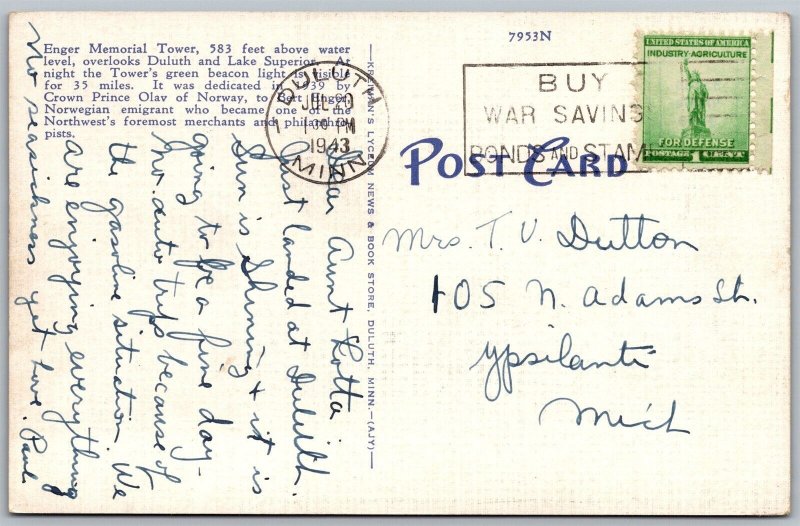 Enger Memorial Tower, 583 feet above water
level, overlooks Duluth and Lake Superior. At
night the Tower's green beacon light is visible
for 35 miles. It was dedicated in 1939 by
Crown Prince Olav of Norway, to Bert Enger,
Norwegian emigrant who became one of the
Northwest's foremost merchants and philanthro-
pists.
7953N
DULUTH
1
JUL 20
1 PM
1943
MINN.
BUY
WAR SAVINGS
BONDS AND STAMPS
UNITED STATES OF AMERICA
INDUSTRY-AGRICULTURE
FOR DEFENSE
POSTAGE 1 CENT
POST CARD
Mrs. T. V. Dutton
105 N. Adams St.
Ypsilanti
Mich
Dear Aunt Lotta:
Just landed at Duluth.
Sun is shining & it is
going to be a fine day.
No auto trips because of
the gasoline situation. We
are enjoying everything
No seasickness yet Love. Paul
NEWS & BOOK STORE, DULUTH, MINN.—(AJY)—